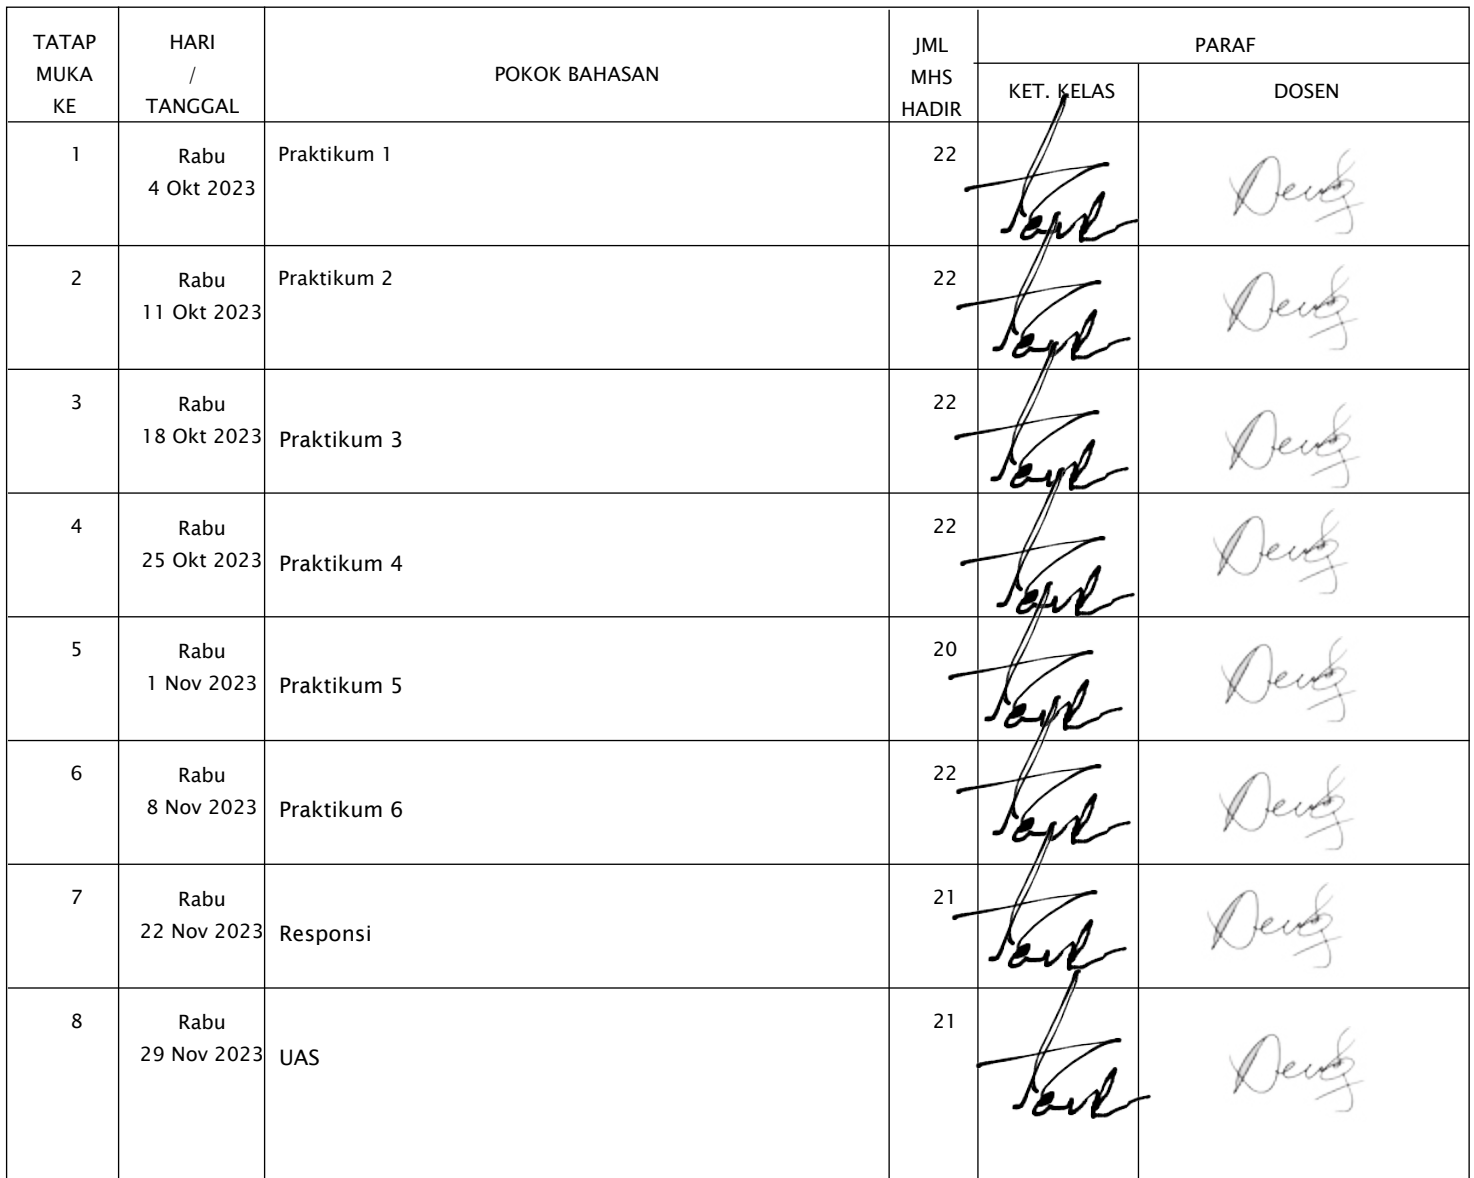 TATAP MUKA KE
HARI / TANGGAL
POKOK BAHASAN
JML MHS HADIR
PARAF
KET. KELAS
DOSEN
1
Rabu
4 Okt 2023
Praktikum 1
22
2
Rabu
11 Okt 2023
Praktikum 2
22
3
Rabu
18 Okt 2023
Praktikum 3
22
4
Rabu
25 Okt 2023
Praktikum 4
22
5
Rabu
1 Nov 2023
Praktikum 5
20
6
Rabu
8 Nov 2023
Praktikum 6
22
7
Rabu
22 Nov 2023
Responsi
21
8
Rabu
29 Nov 2023
UAS
21